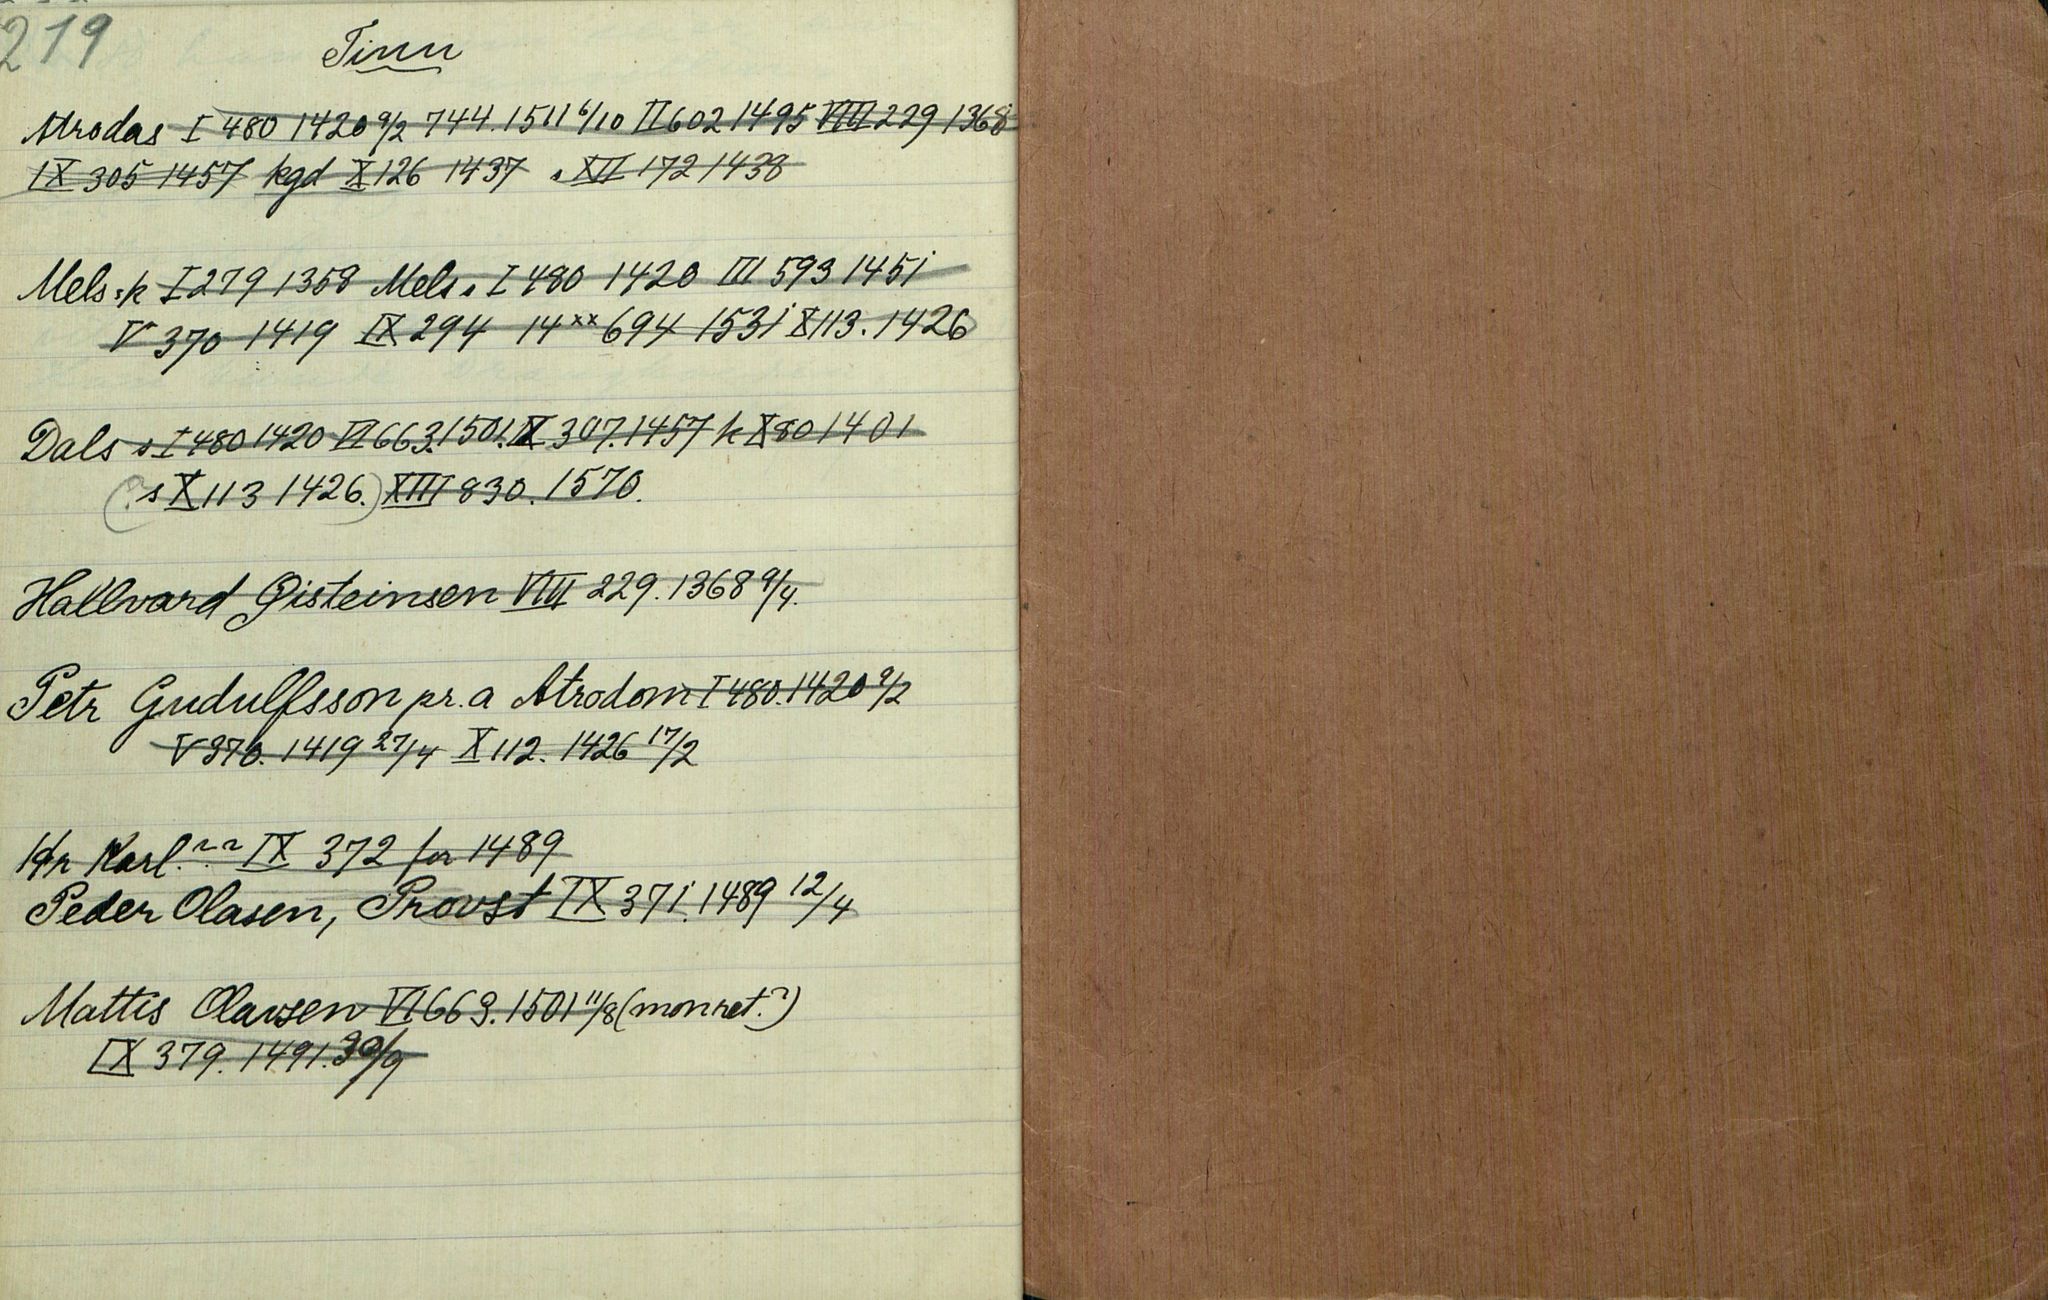 219
Tinn
Atrodas I 480 1420 9/2 744. 1511 6/10 II 602 1495 VIII 229 1368
IX 305 1457 kgd X 126 1437 s XII 172 1438
Mels. k I 279 1358 Mels s I 480 1420 III 593 1451
V 370 1419 IX 294 14xx 694 1531 X 113. 1426
Dals s I 480 1420 VI 663. 1501. IX 307. 1457 k X 80 1401
(? s X 113 1426.) XIII 830. 1570.
Hallvard Øisteinsen VIII 229. 1368 9/4.
Petr Gudulfsson pr. a Atrodom I 480. 1420 9/2
V 370. 1419 27/4 X 112. 1426 17/2
Hr Karl. ~ ~ IX 372 før 1489
Peder Olasen, Provst IX 371. 1489 12/4
Mattis Olavsen VI 663. 1501 11/8 (mon ret.?)
IX 379. 1491. 30/9